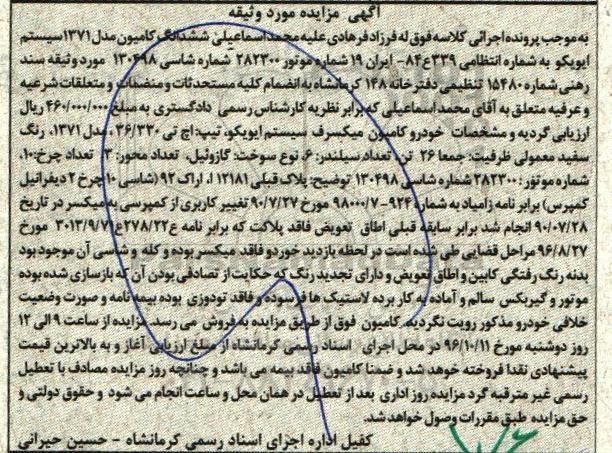 آگهی مزایده مورد وثیقه
به موجب پرونده اجرائی کلاسه فوق له فرزاد فرهادی علیه محمد اسماعیلی ششدانگ کامیون مدل ۱۳۷۱ سیستم
ایویکو به شماره انتظامی ۳۳۹ع۸۴- ایران ۱۹ شماره موتور ۲۸۲۳۰۰ شماره شاسی ۱۳۰۴۹۸ مورد وثیقه سند
رهنی شماره ۱۵۴۸۰ تنظیمی دفترخانه ۱۴۸ کرمانشاه به انضمام کلیه مستحدثات و منضمات و متعلقات شرعیه
و عرفیه متعلق به آقای محمد اسماعیلی که برابر نظریه کارشناس رسمی دادگستری به مبلغ ۴۶۰/۰۰۰/۰۰۰ ریال
ارزیابی گردیه و مشخصات خودرو کامیون میکسرف سیستم ایویکو، تیپ: اچ تی ۳۶/۳۳۰، مدل ۱۳۷۱، رنگ
سفید معمولی ظرفیت: جمعا ۲۶ تن، تعداد سیلندر: ۶، نوع سوخت: گازوئیل، تعداد محور: ۳، تعداد چرخ: ۱۰،
شماره موتور: ۲۸۲۳۰۰ شماره شاسی ۱۳۰۴۹۸ توضیح: پلاک قبلی ۱۲۱۸۱ ا، اراک ۹۲ (شاسی ۱۰ چرخ ۲ دیفرانیل
کمپرس) برابر نامه زامیاد به شماره ۹۲۴-۹۸۰۰۰۷ مورخ ۹۰/۷/۲۷ تغییر کاربری از کمپرسی به میکسر در تاریخ
۹۰/۰۷/۲۸ انجام شد برابر سابقه قبلی اطاق تعویض فاقد پلاکت که برابر نامه ع۲۷۸/۲۲ع۳۰۱۳/۹/۷ مورخ
۹۶/۸/۲۷ مراحل قضایی طی شده است در لحظه بازدید خودرو فاقد میکسر بوده و کله و شاسی آن موجود بود
بدنه رنگ رفتگی کابین و اطاق تعویض و دارای تجدید رنگ که حکایت از تصادفی بودن آن که بازسازی شده بوده
موتور و گیربکس سالم و آماده به کار برده لاستیک ها فرسوده و فاقد تودوزی بوده بیمه نامه و صورت وضعیت
خلافی خودرو مذکور رویت نگردید. کامیون فوق از طریق مزایده به فروش می رسد. مزایده از ساعت ۹ الی ۱۲
روز دوشنبه مورخ ۹۶/۱۰/۱۱ در محل اجرای اسناد رسمی کرمانشاه از مبلغ ارزیابی آغاز و به بالاترین قیمت
پیشنهادی نقدا فروخته خواهد شد و ضمنا کامیون فاقد بیمه می باشد و چنانچه روز مزایده مصادف با تعطیل
رسمی غیر مترقبه گرد مزایده روز اداری بعد از تعطیل در همان محل و ساعت انجام می شود و حقوق دولتی و
حق مزایده طبق مقررات وصول خواهد شد.
کفیل اداره اجرای اسناد رسمی کرمانشاه - حسین حیرانی